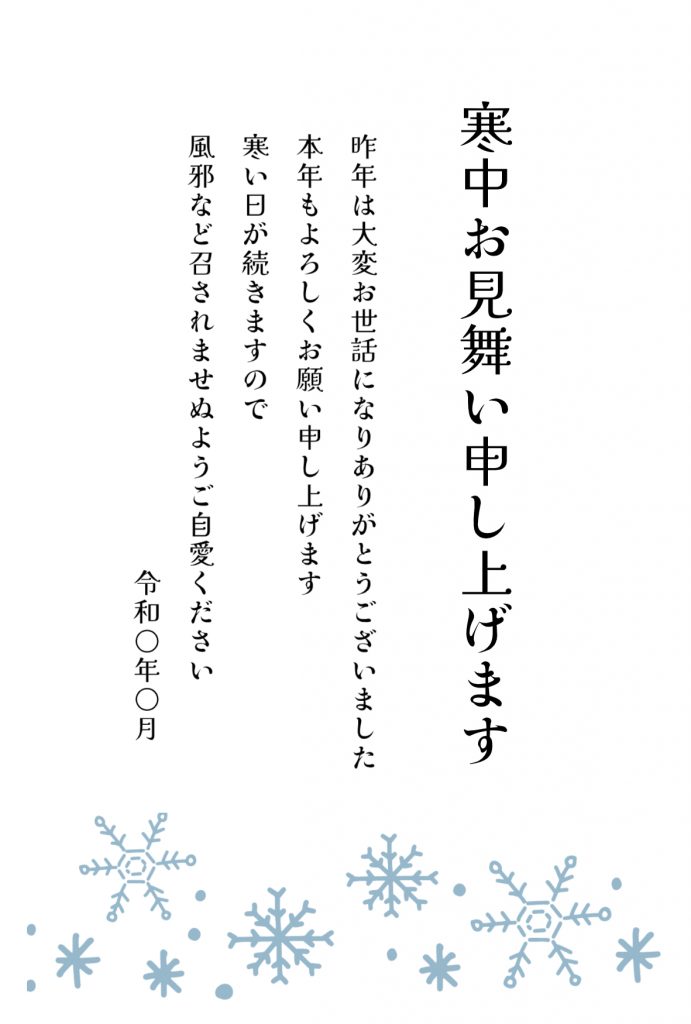 寒中お見舞い申し上げます
昨年は大変お世話になりありがとうございました
本年もよろしくお願い申し上げます
寒い日が続きますので
風邪など召されませぬようご自愛ください
令和〇年〇月